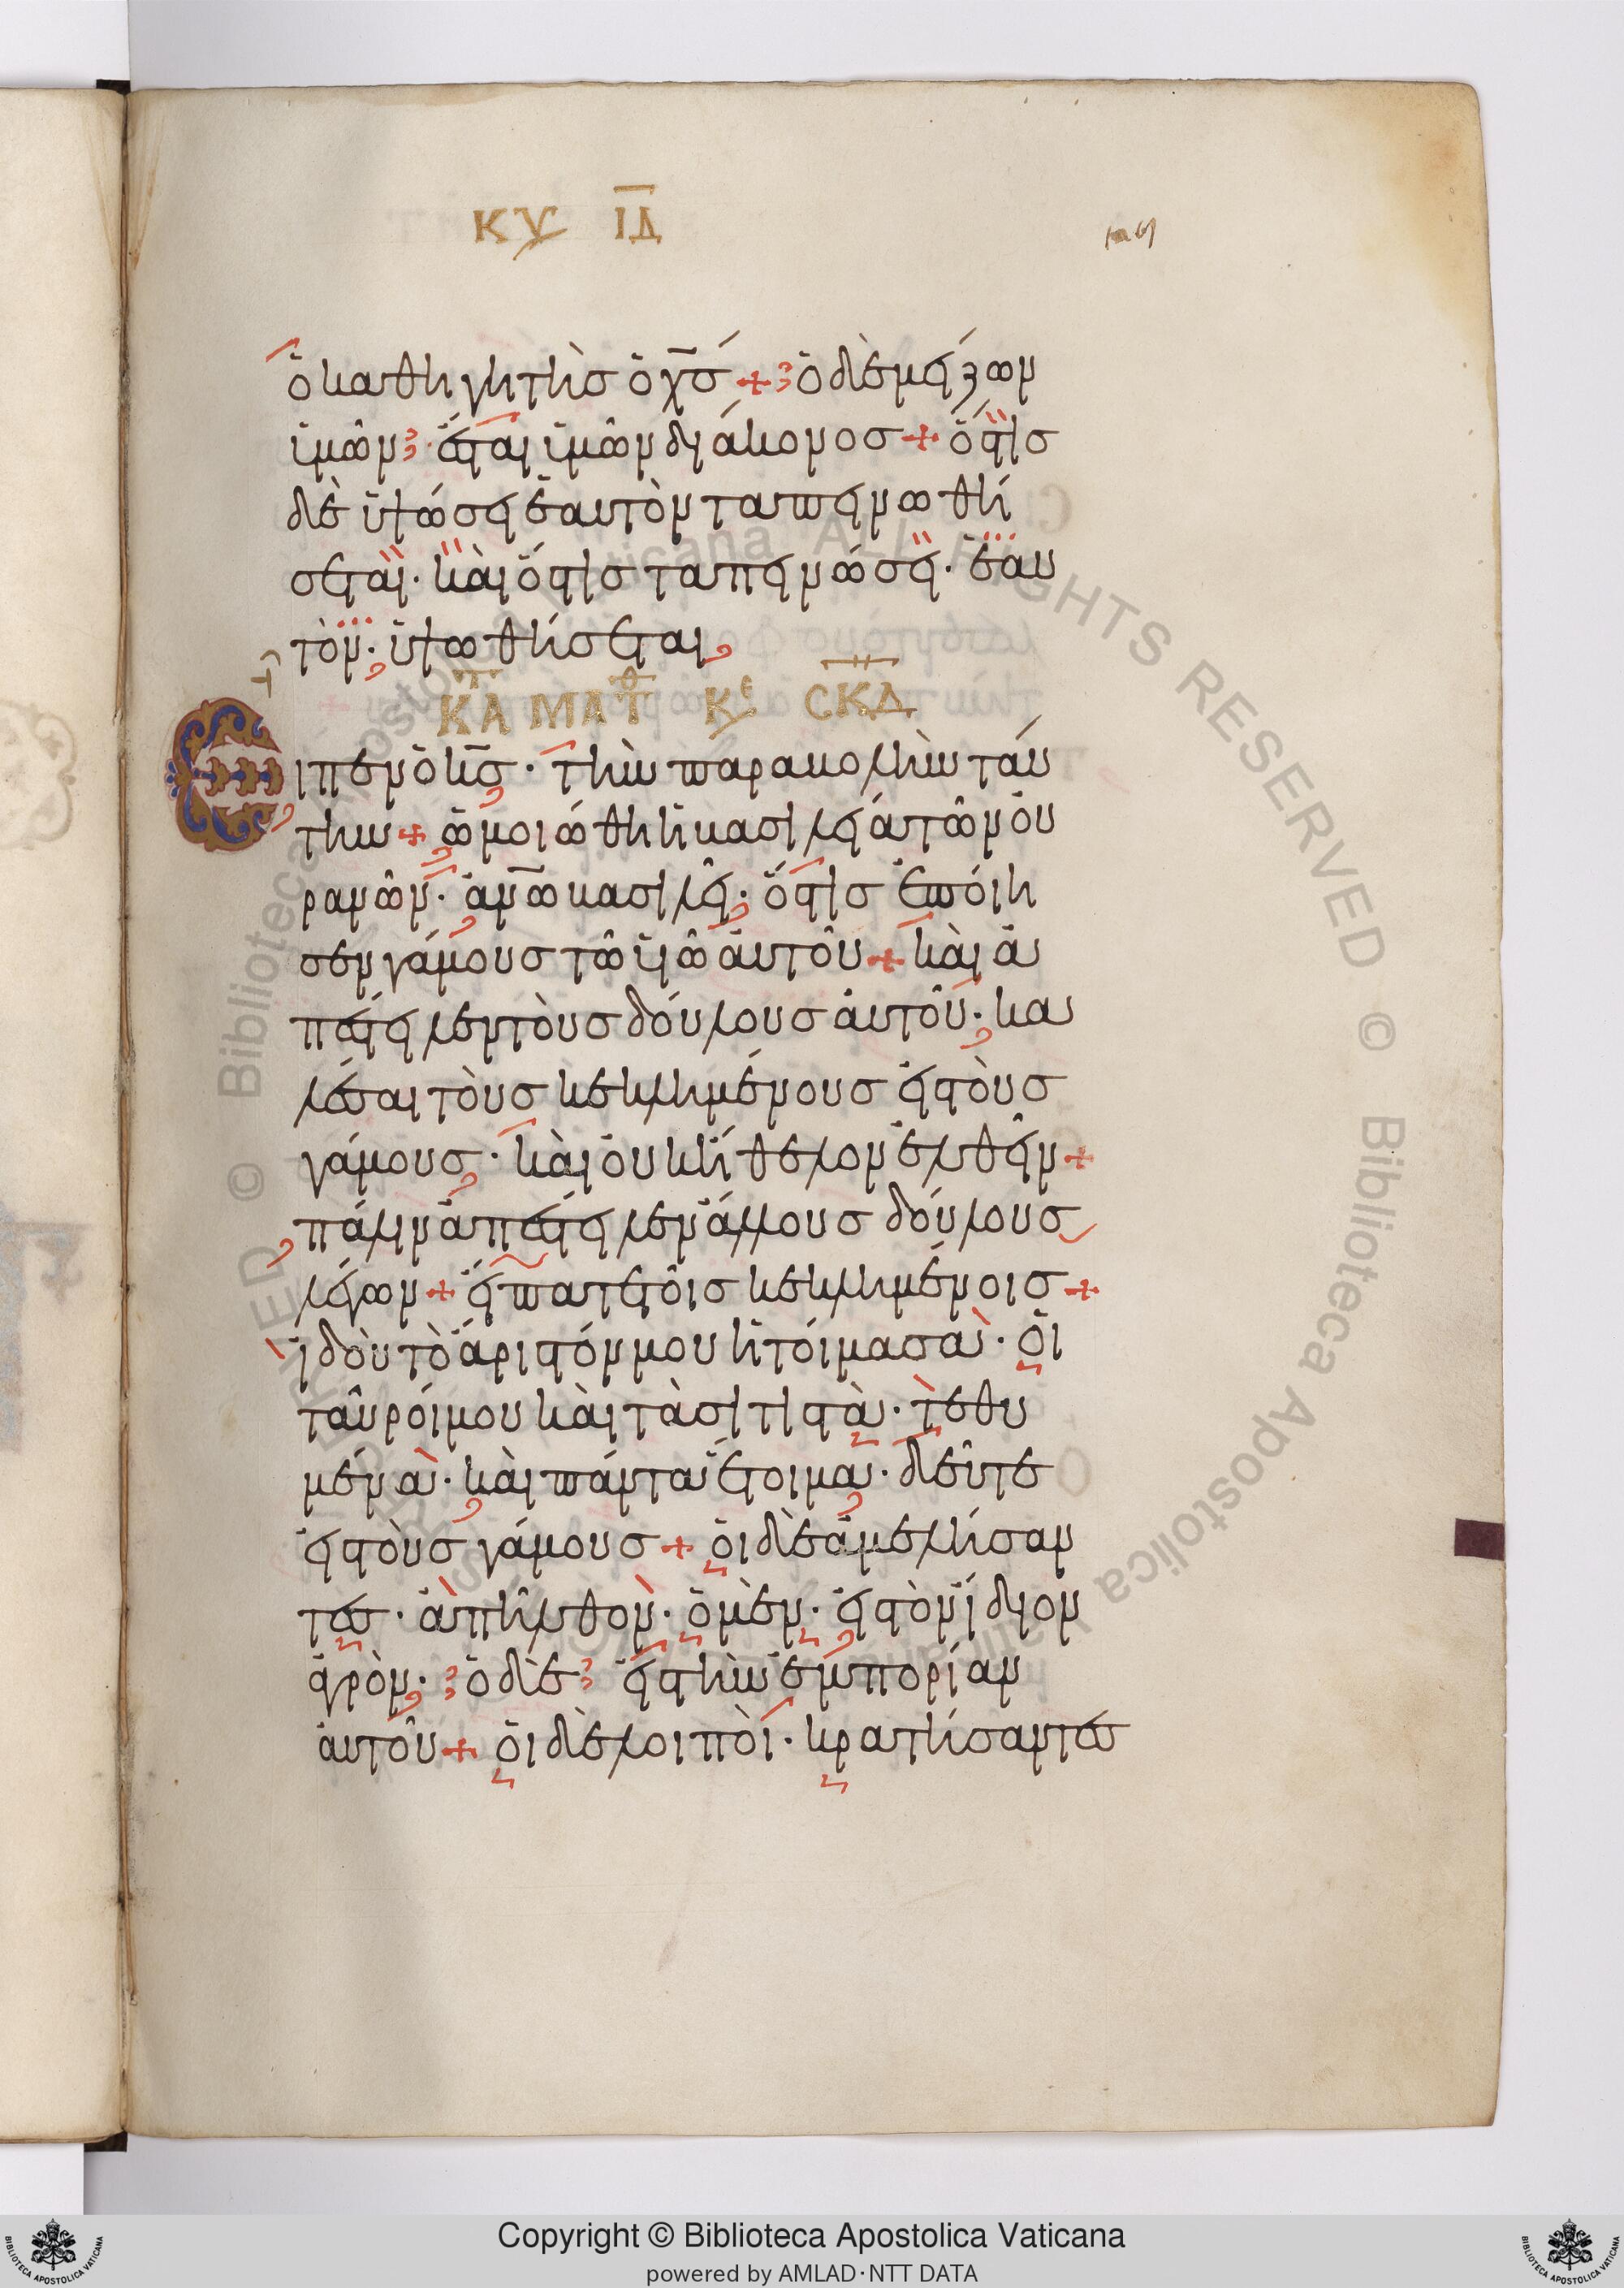 ΚΥ ΙΔ
ὁ καθηγητὴσ ὁ χσ + ὁ δὲ μείζων
ὑμῶν · ἔσται ὑμῶν διάκονοσ + ὅστισ
δὲ ὑψώσει ἑαυτὸν ταπεινωθή
σεται · καὶ ὅστισ ταπεινώσει · ἑαυ
τὸν · ὑψωθήσεται
ΚΑ ΜΑΤΘ ΚΕ ΣΚΔ
Ειπεν ὁ κσ · τὴν παραβολὴν ταύ
την + ὡμοιώθη ἡ βασιλεία τῶν οὐ
ρανῶν · ἀνω βασιλεῖ · ὅστισ ἐποίη
σεν γάμουσ τῶ υἱῶ αὐτοῦ + καὶ ἀ
πέστειλεν τοὺσ δούλουσ αὐτοῦ · κα
λέσαι τοὺσ κεκλημένουσ εἰστοὺσ
γάμουσ · καὶ οὐκ ἤθελον ἐλθεῖν +
πάλιν ἀπέστειλεν ἄλλουσ δούλουσ
λέγων + εἴπατε τοῖσ κεκλημένοισ +
ἰδοὺ τὸ ἄριστόν μου ἡτοίμασα · οἱ
ταῦροί μου καὶ τὰ σιτιστὰ · τεθυ
μένα · καὶ πάντα ἕτοιμα · δεῦτε
εἰστοὺσ γάμουσ + οἱ δὲ ἀμελήσαν
τεσ · ἀπῆλθον · ὁ μὲν · εἰστὸν ἴδιον
ἀγρὸν · ὁ δὲ εἰστὴν ἐμπορίαν
αὐτοῦ + οἱ δὲ λοιποὶ · κρατήσαντεσ
Copyright © Biblioteca Apostolica Vaticana
powered by AMLAD·NTT DATA